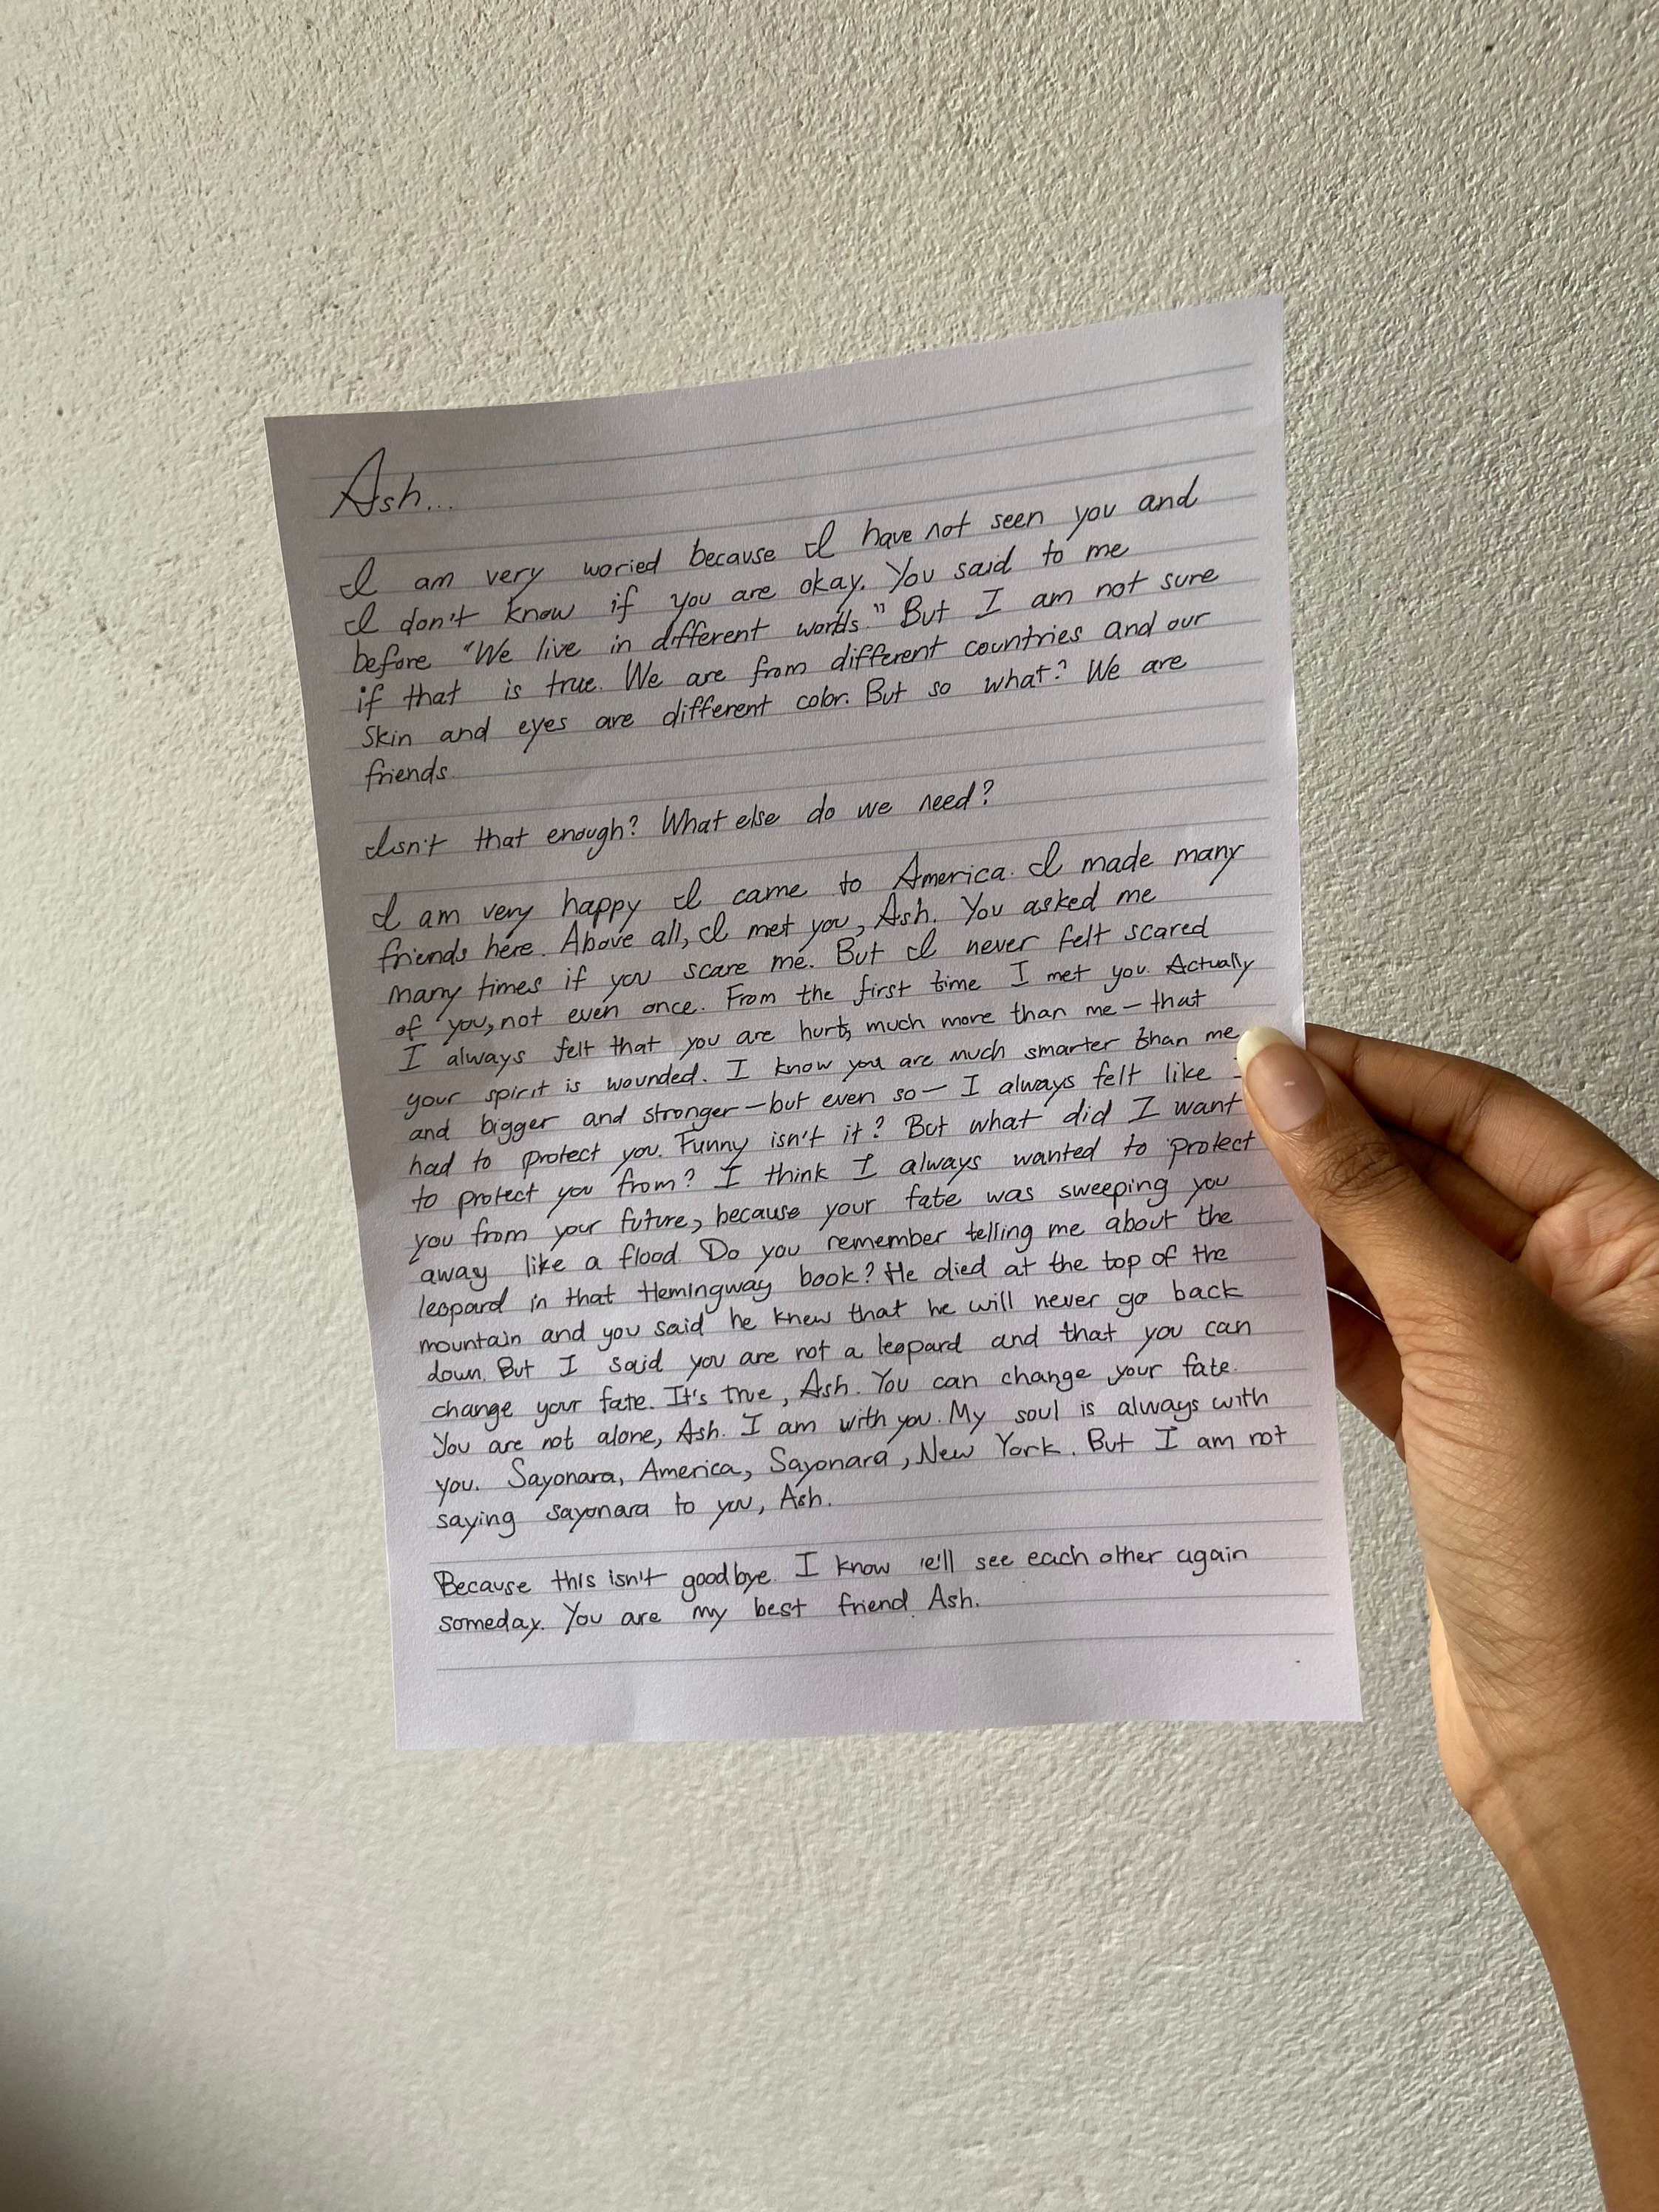 Ash...
I am very woried because I have not seen you and
I don't know if you are okay. You said to me
before "We live in different worlds." But I am not sure
if that is true. We are from different countries and our
skin and eyes are different color. But so what? We are
friends.
Isn't that enough? What else do we need?
I am very happy I came to America. I made many
friends here. Above all, I met you, Ash. You asked me
many times if you scare me. But I never felt scared
of you, not even once. From the first time I met you. Actually
I always felt that you are hurt, much more than me — that
your spirit is wounded. I know you are much smarter than me
and bigger and stronger — but even so — I always felt like I
had to protect you. Funny isn't it? But what did I want
to protect you from? I think I always wanted to protect
you from your future, because your fate was sweeping you
away like a flood. Do you remember telling me about the
leopard in that Hemingway book? He died at the top of the
mountain and you said he knew that he will never go back
down. But I said you are not a leopard and that you can
change your fate. It's true, Ash. You can change your fate.
You are not alone, Ash. I am with you. My soul is always with
you. Sayonara, America, Sayonara, New York. But I am not
saying sayonara to you, Ash.
Because this isn't goodbye. I know we'll see each other again
someday. You are my best friend. Ash.